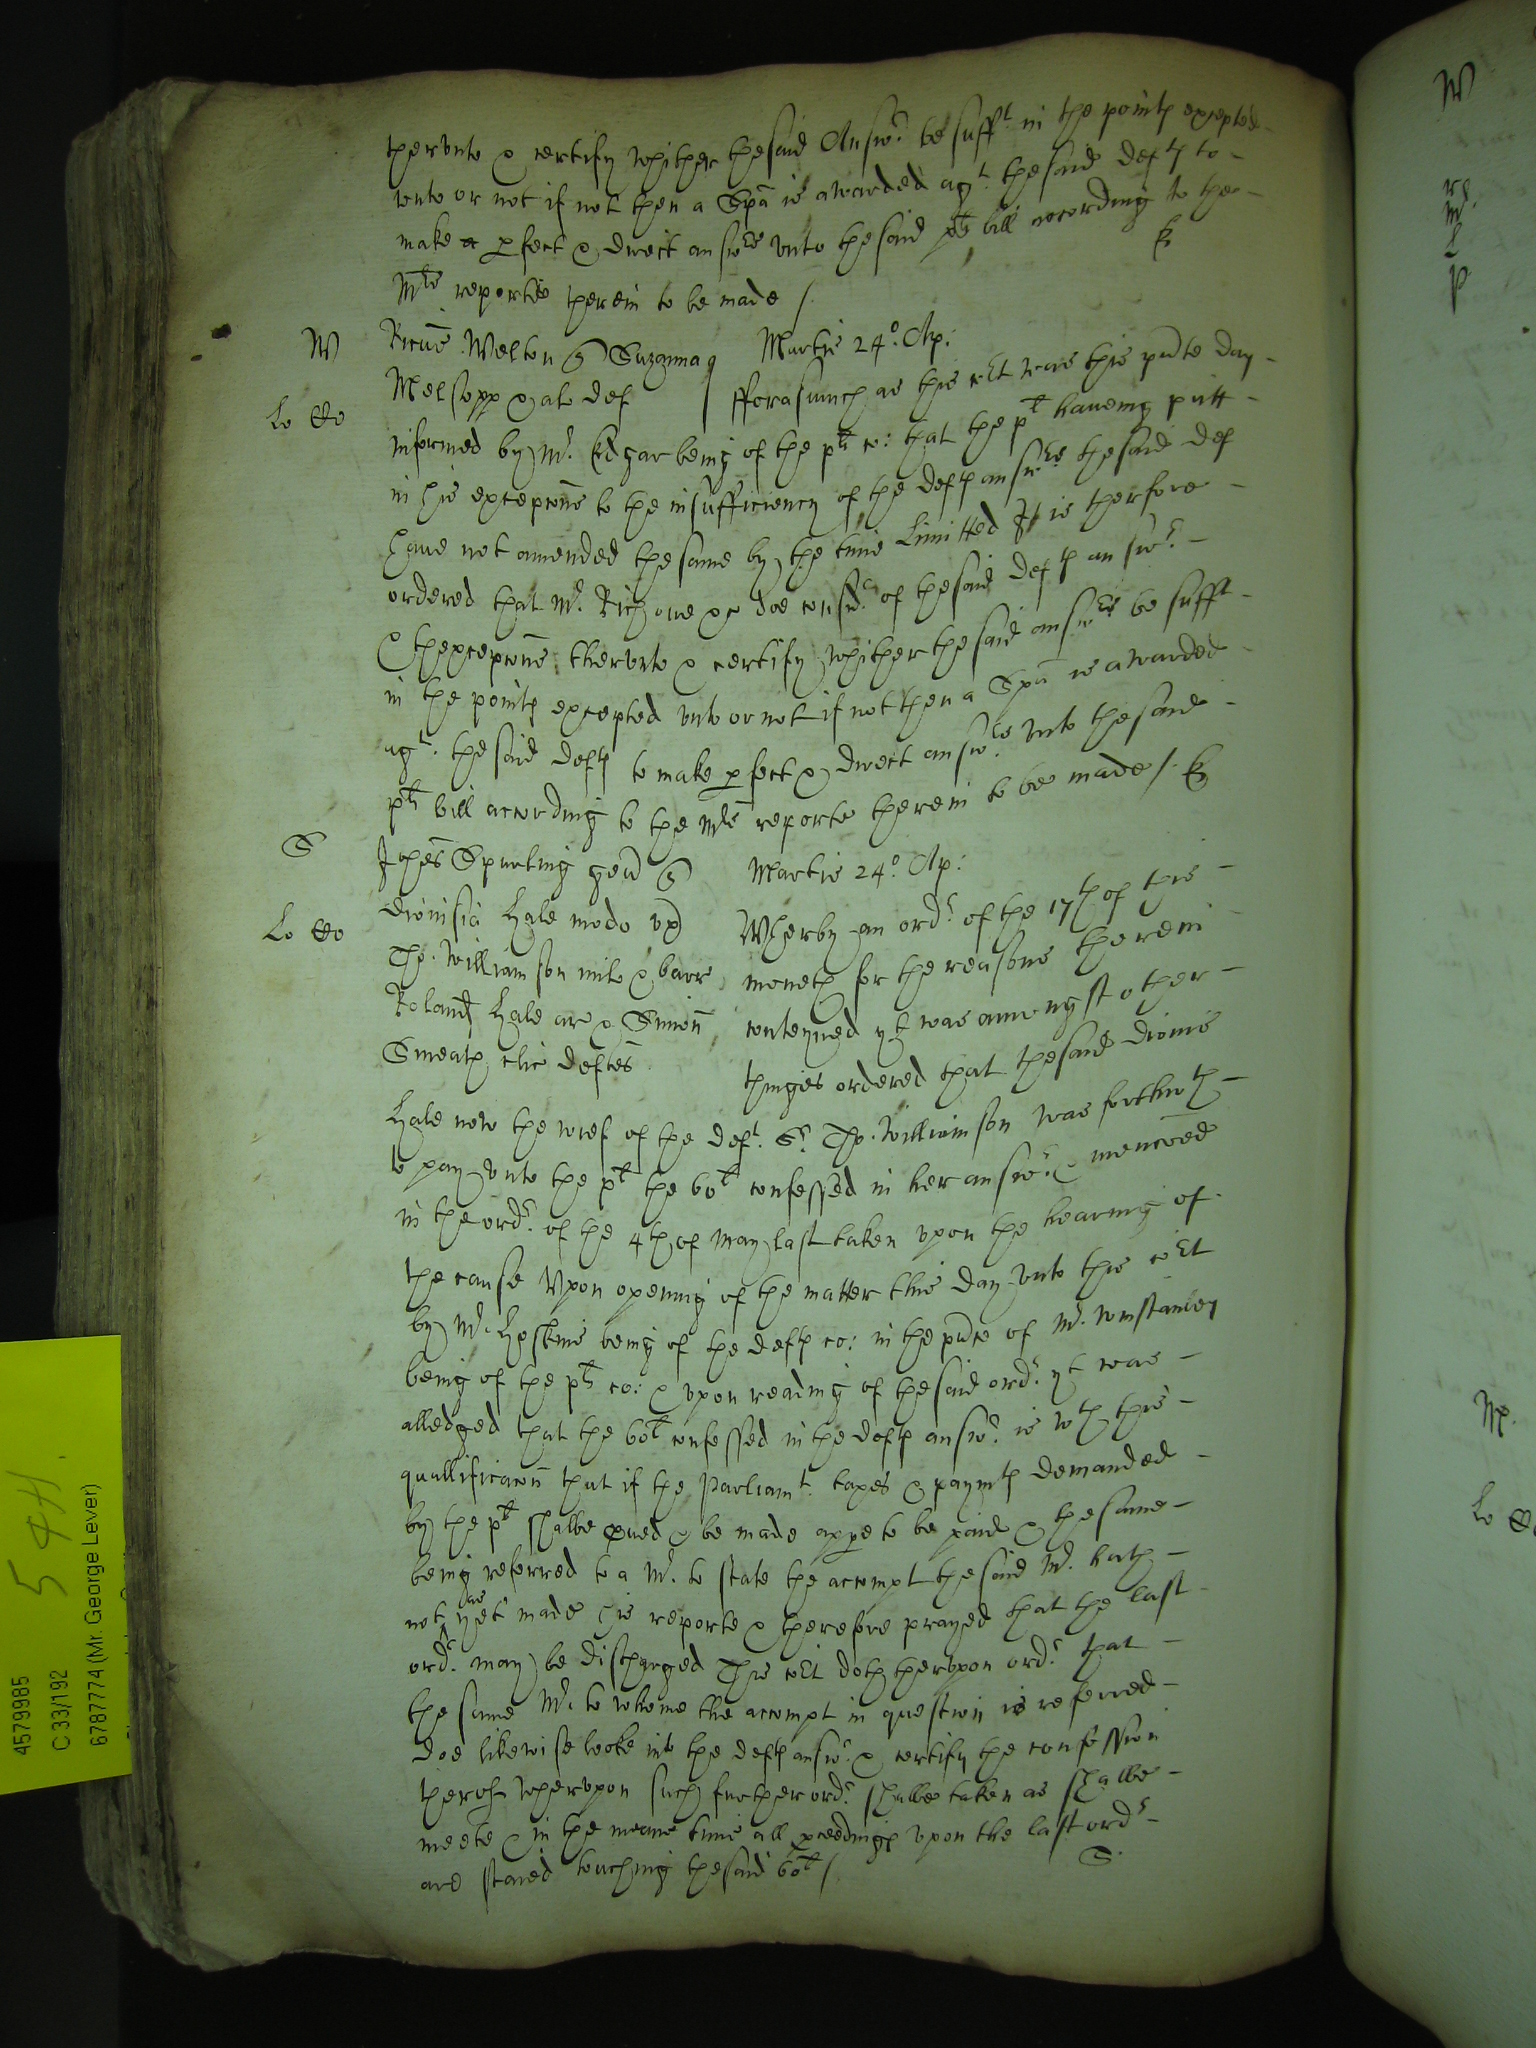 thervnto & certify whither the said Answr. be sufft. in the points excepted
vnto or not if not then a Spa is awarded agt. the said defts to
make a perfect & direct answere vnto the said plts bill according to the
Mrs reporte therein to be made /
W
Ricus Welton q Suzanna
Martis 24o. Ap:
Lo Co
Melsopp & al def
fforasmuch as this cort was this pnte day
informed by Mr. Edgar being of the plts co: that the plt haueing putt
in his excepcons to the insufficiency of the defts answere the said def
haue not amended the same by the time limitted It is therfore
ordered that Mr. Rich one &c doe consider of the said defts answr.
& thexcepcons thervnto & certify whither the said answere be sufft
in the points excepted vnto or not if not then a Spa is awarded
agt. the said defts to make perfect & direct answere vnto the said
plts bill according to the Mrs reporte therein to be made /.
S
Johes Spurling gen q
Martis 24o. Ap:
Lo Co
Dionisia Hale modo vx
Wherby an ordr. of the 17th of this
Tho. Williamson milt & barr
moneth for the reasons therein
Roland Hale ar & Simon
conteyned yt was amongst other
Smeath clic deftes
thinges ordered that the said Dionis
Hale now the wief of the deft. Sr. Tho. Williamson was forthwth
to pay vnto the plt the 60l confessed in her answr. & menconed
in the ordr. of the 4th of May last taken vpon the hearing of
the cause Vpon opening of the matter this day vnto this cort
by Mr. Hoskins being of the defts co: in the pnce of Mr. Winstanley
being of the plts co: & vpon reading of the said ordr. yt was
alledged that the 60l confessed in the defts answr. is wth this
quallificacon that if the Parliamt. taxes & paymts demanded
by the plt shalbe proued & be made appe to be paid & the same
being referred to a Mr. to state the accompt the said Mr. hath
not as yet made his reporte & therefore prayed that the last
ordr. may be discharged This cort doth thervpon ordr. that
the same Mr. to whome the accompt in question is referred
doe likewise looke into the defts answr. & certify the confession
therof Whervpon such further ordr. shalbe taken as shalbe
meete & in the meane time all proceedings vpon the last ordr
are staied touching the said 60l /.
S.
5 4H.
4579985
C 33/192
6787774 (Mr. George Lever)